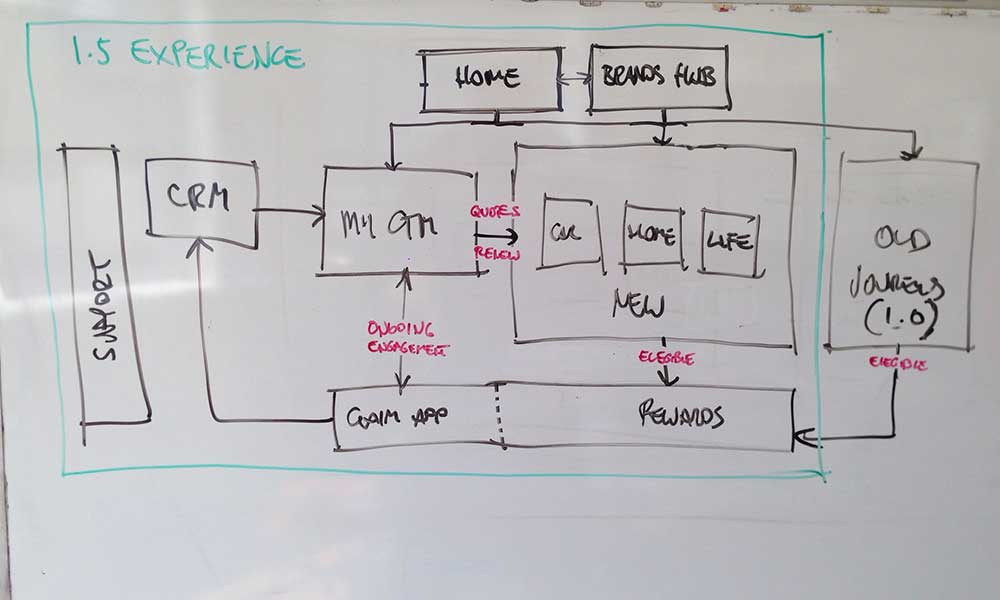 1.5 EXPERIENCE
HOME
BRANDS HUB
SUPPORT
CRM
MY GTM
QUOTES
RENEW
CAR
HOME
LIFE
NEW
OLD
JOURNEYS
(1.0)
ONGOING
ENGAGEMENT
ELEGIBLE
ELEGIBLE
CLAIM APP
REWARDS